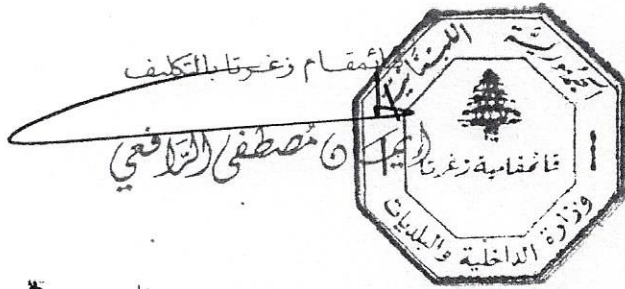 قائمقام زغرتا بالتكليف
ايمان مصطفى الرافعي
الجمهورية اللبنانية
قائمقامية زغرتا
وزارة الداخلية والبلديات